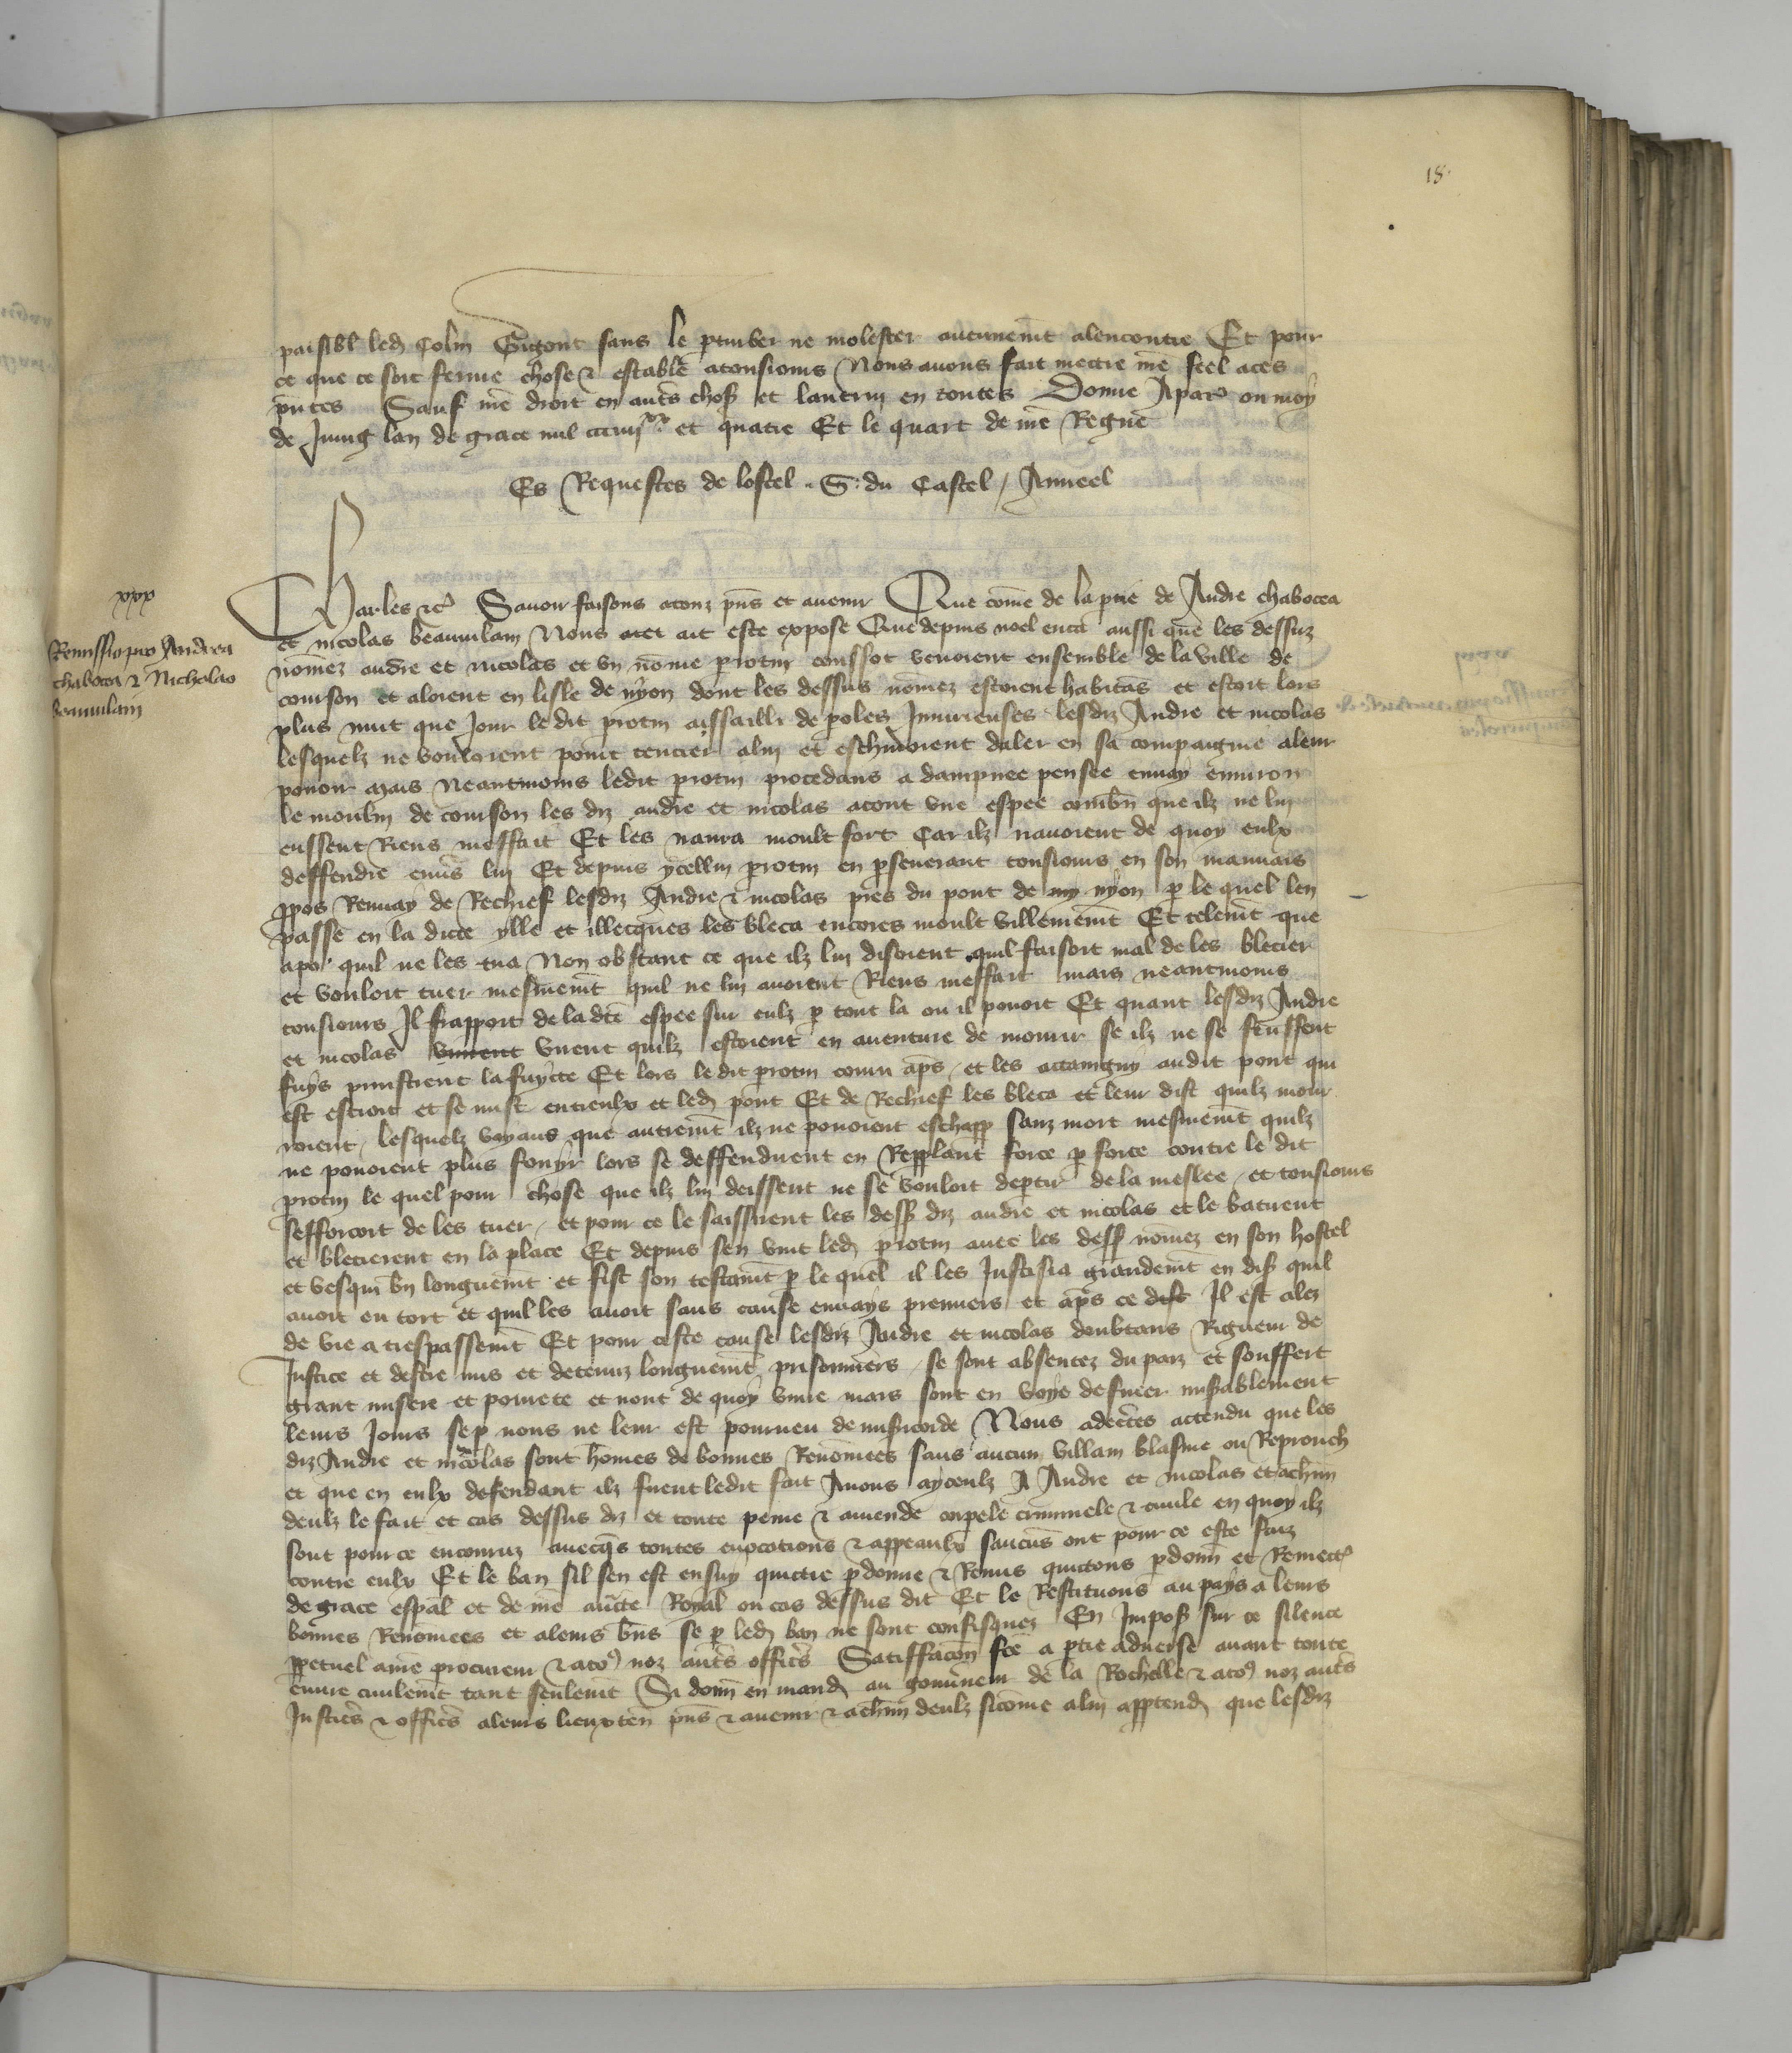 18
paisibl led Colin Gigont sans le ptruber ne molester aucunemt alencontre Et pour
ce que ce soit ferme chose & estable atousiours Nous auons fait mettre nre seel a ces
pntes Sauf nre droit en autes chos et lautruy en toutes Donne Aparis ou moys
de Juing lan de grace mil ccciiij xx et quatre Et le quart de nre Regne
Es Requestes de lostel . G. du Castel / Anneel
xxx
Remissio pro Andrea
chabocea & Nicholao
beauvilain
Charles &c Sauoir faisons atouz pns et auenir Que come de la ptie de Andre chabocea
et nicolas beauuilain Nous ait este expose Que depuis noel enca aussi que les dessuz
nomez andre et nicolas et vn nome protin coussot venoient ensemble de la ville de
courson et aloient en lisle de nyon dont les dessus nomez estoient habitas et estoit lors
plus nuit que Jour le dit protin assailli de poles Iniurieuses lesdiz Andre et nicolas
lesquelz ne vouloient point tencier alui et eschiuoient daler en sa compaignie aleur
pouoir mais neantmoins ledit protin procedans a dampnee pensee enuay enuiron
le moulin de courson les diz andre et nicolas atout vne espee combn que ilz ne lui
eussent Riens meffait Et les naura moult fort Car ilz nauoient de quoy eulx
deffendre enus lui Et depuis ycellui protin en pseuerant tousiours en son mauuais
ppos Renuay de Rechief lesdiz Andre & nicolas pres du pont de nyon p le quel len
passe en la dicte ylle et illecques les bleca encores moult villenemt Et telemt que
apo quil ne les tua Non obstant ce que ilz lui disoient quil faisoit mal de les blecier
et vouloir tuer mesmemt quil ne lui auoient Riens meffait mais neantmoins
tousiours Il frappoit de ladte espee sur eulz p tout la ou il pouoit Et quant lesdiz Andre
et nicolas virent quilz estoient en auenture de mourir se ilz ne se feussent
fuys pristrent la fuytte Et lors le dit protin couru aps et les attaingny audit pont qui
est estroit et se mist entreulx et led pont Et de Rechief les bleca et leur dist quilz mour
roient / lesquelz voyans que autremt ilz ne pouoient eschapp sanz mort mesmemt quilz
ne pouoient plus fouyr lors se deffendirent en Repplant force p force contre le dit
protin le quel pour chose que ilz lui deissent ne se vouloit deptir de la meslee et tousiours
sefforcoit de les tuer / et pour ce le saisirent les dess diz andre et nicolas et le batirent
et blecierent en la place Et depuis sen vint led protin auec les dess nomez en son hostel
et vesqui bn longuemt et fist son testamt p le quel il les Justifia grandemt en dis quil
auoit eu tort et quil les auoit sans cause enuays premiers et aps ce Il est alez
de vie a trespassemt Et pour ceste cause lesdiz Andre et nicolas doubtans Rigueur de
Justice et destre mis et detenuz longuemt prisonniers se sont absentez du paiz et souffert
grant misere et pourete et nont de quoy viure mais sont en voye de finer misablement
leurs Jours se p nous ne leur est pourueu de misicorde Nous adecertes attendu que les
diz Andre et nicolas sont homes de bonnes Renomees sans aucun villain blasme ou Reprouch
et que en eulx defendant ilz firent ledit fait Auons ayceulz Andre et nicolas et achun
deulz le fait et cas dessus diz et toute peine & amende corpele criminele & ciuile en quoy ilz
sont pource encouruz auecqs toutes euocations & appeaulx saucus ont pour ce este faiz
contre eulx Et le ban sil sen est ensuy quictie pdonne & Remis quictons pdonn et Remect
de grace espal et de nre aucte Royal ou cas dessus dit Et le Restituons au pays a leurs
bonnes Renomees et aleurs bns se p led ban ne sont confisquez En Impos sur ce silence
ppetuel anre procureur & atos noz autes offices Satiffacon fce a ptie aduerse auant toute
euure ciuilemt tant seulemt Si donn en mand au gouuneur de la Rochelle & atos noz autes
Justices & offices aleurs lieuxten pns & auenir & achun deulz sicome alui apptend que lesdiz